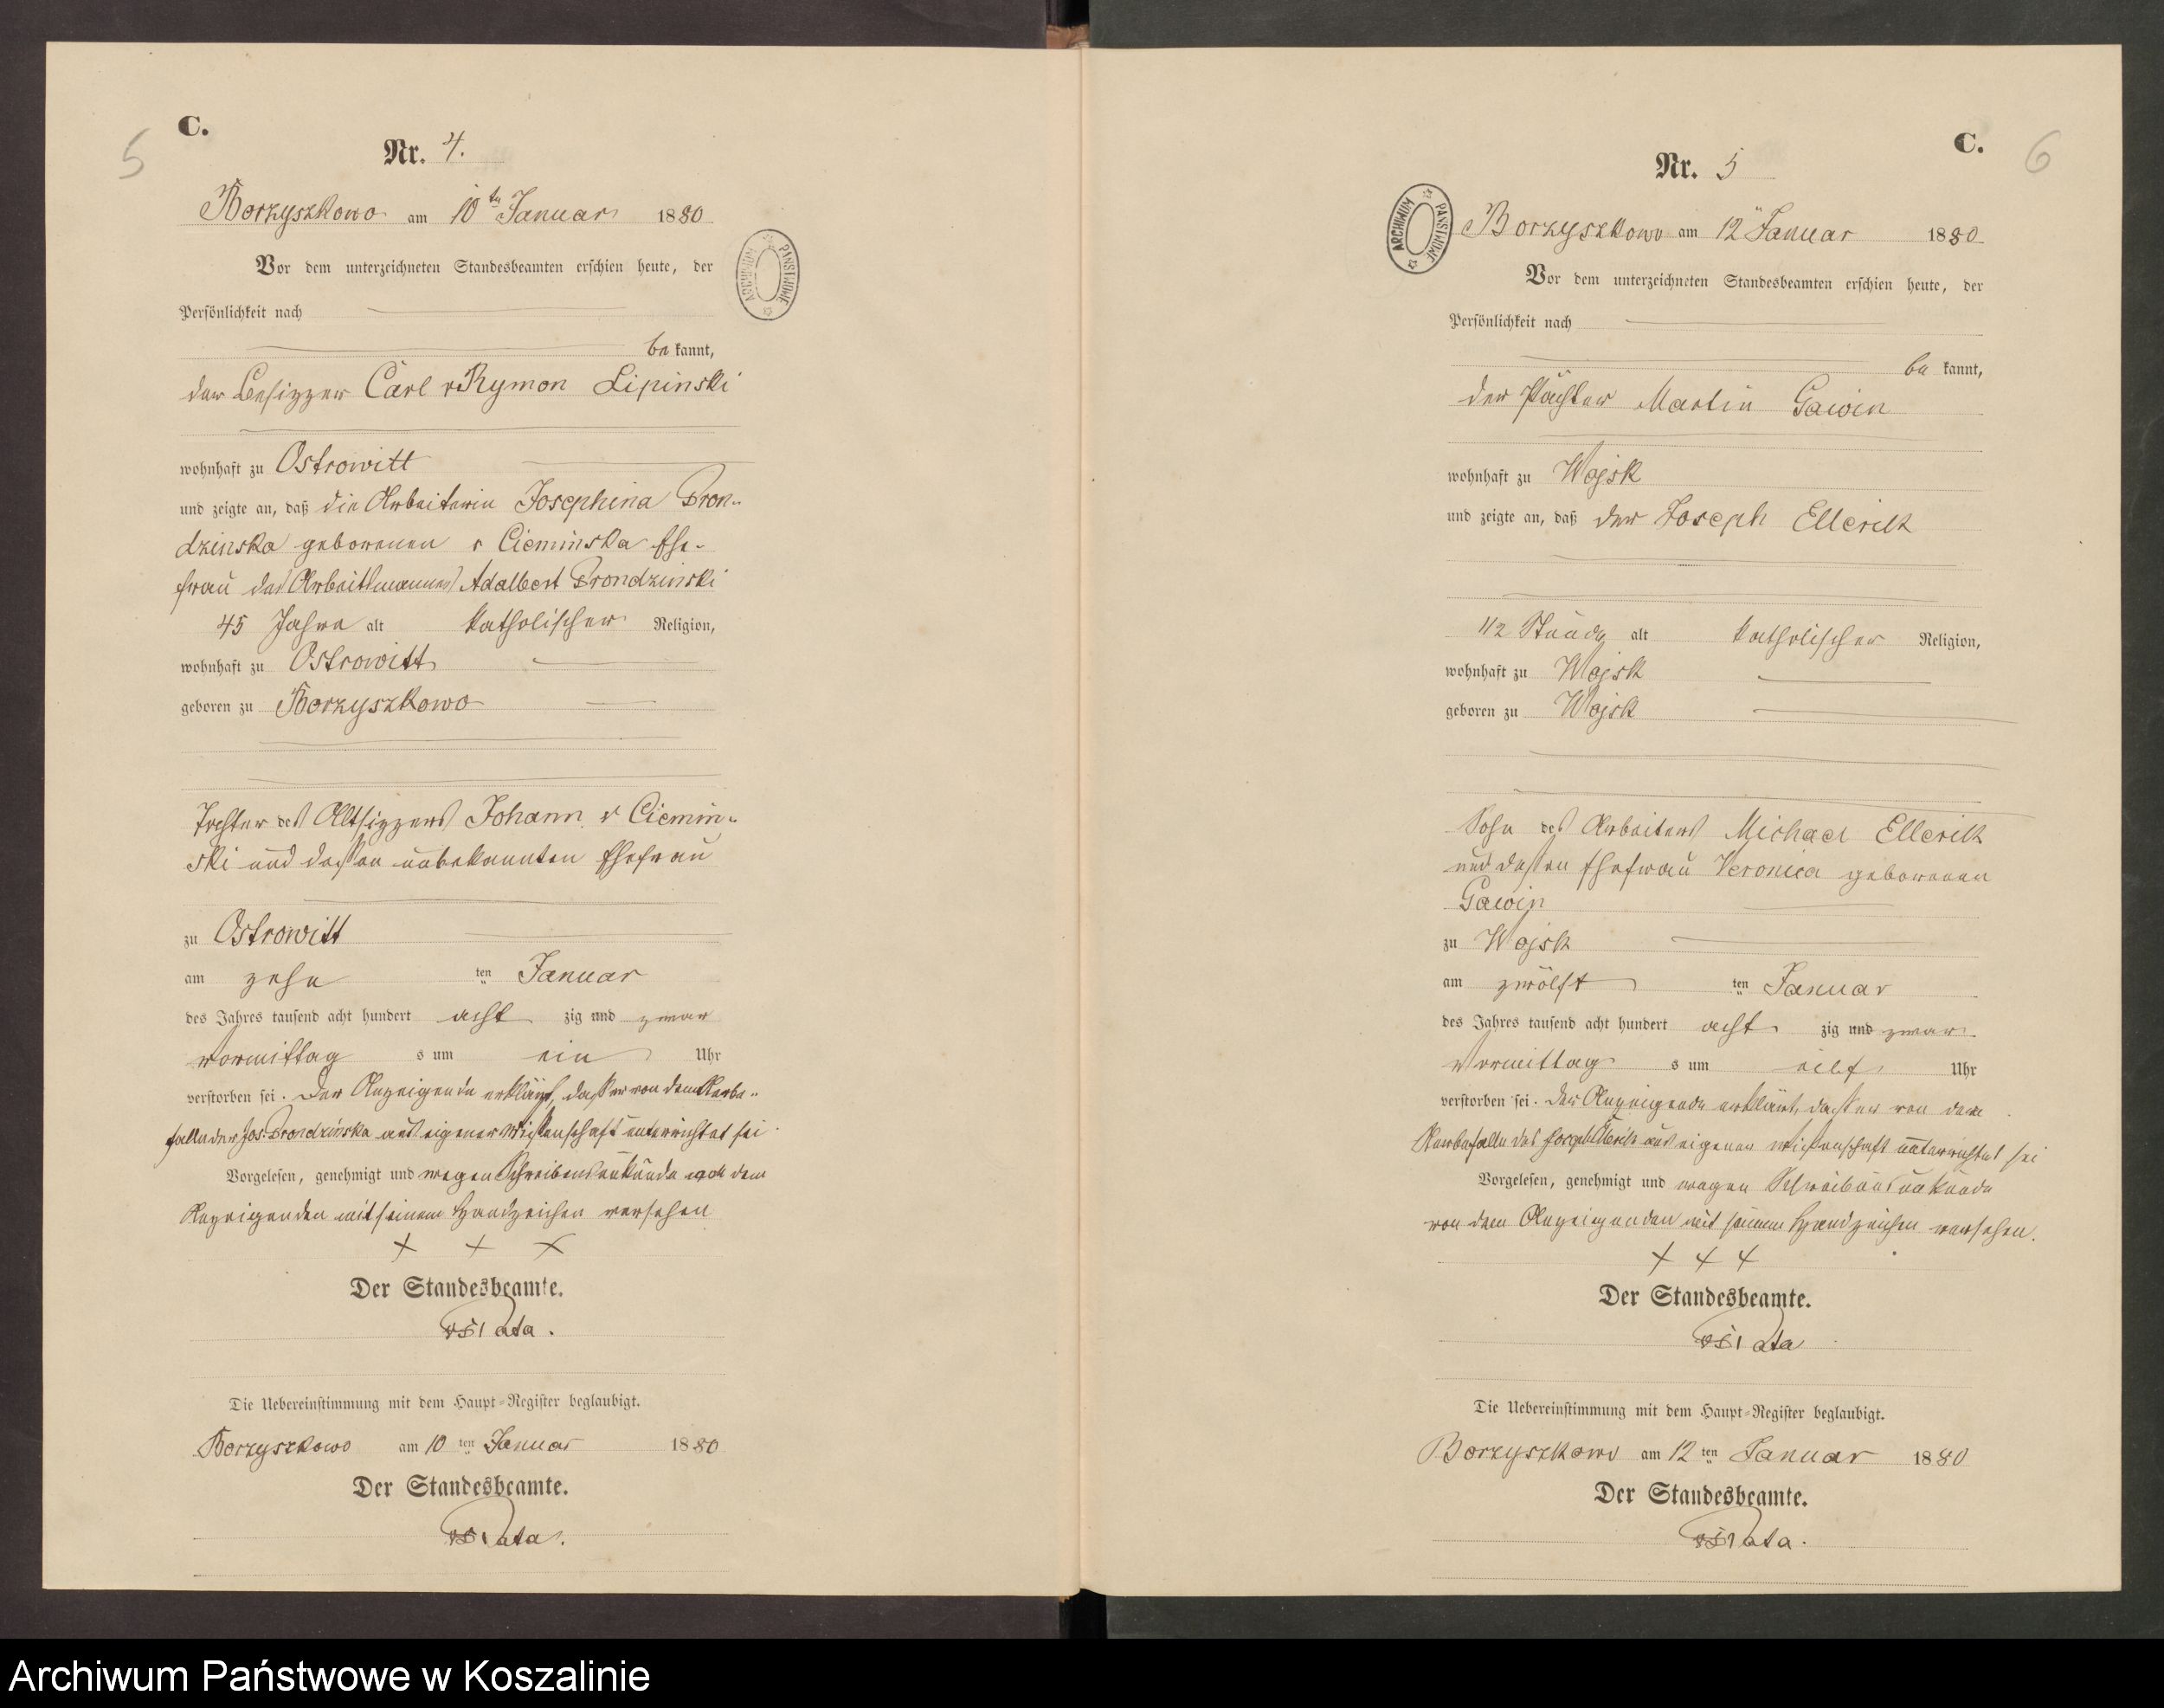 C.
5
Nr. 4.
Borzyszkowo am 10ten Januar 1880
Vor dem unterzeichneten Standesbeamten erschien heute, der
Persönlichkeit nach
be kannt,
der Besizzer Carl v Rymon Lipinski
wohnhaft zu Ostrowitt
und zeigte an, daß die Arbeiterin Josephina Pron-
dzinska geborenen v Cieminska Ehe-
frau des Arbeitsmannes Adalbert Prondzinski
45 Jahre alt katholischer Religion,
wohnhaft zu Ostrowitt
geboren zu Borzyszkowo
Tochter des Altsizzers Johann v Ciemin-
ski und dessen unbekannten Ehefrau
zu Ostrowitt
am zehn ten Januar
des Jahres tausend acht hundert acht zig und zwar
vormittag s um ein Uhr
verstorben sei. Der Anzeigende erklärt, daß er von dem Sterbe-
falle der Jos. Prondzinska aus eigener Wissenschaft unterrichtet sei
Vorgelesen, genehmigt und wegen Schreibensunkunde von dem
Anzeigenden mit seinem Handzeichen versehen
+ + +
Der Standesbeamte.
Pata.
Die Uebereinstimmung mit dem Haupt-Register beglaubigt.
Borzyszkowo am 10 ten Januar 1880
Der Standesbeamte.
Pata.
ARCHIWUM PAŃSTWOWE
C.
6
Nr. 5
Borzyszkowo am 12 Januar 1880
Vor dem unterzeichneten Standesbeamten erschien heute, der
Persönlichkeit nach
be kannt,
der Pächter Martin Gawin
wohnhaft zu Wojsk
und zeigte an, daß der Joseph Ellerik
1/2 Stunde alt katholischer Religion,
wohnhaft zu Wojsk
geboren zu Wojsk
Sohn des Arbeiters Michael Ellerik
und dessen Ehefrau Veronica geborenen
Gawin
zu Wojsk
am zwölft ten Januar
des Jahres tausend acht hundert acht zig und zwar
Vormittag s um eilf Uhr
verstorben sei. Der Anzeigende erklärt, daß er von dem
Sterbefalle des Joseph Ellerik aus eigener Wissenschaft unterrichtet sei
Vorgelesen, genehmigt und wegen Schreibensunkunde
von dem Anzeigenden mit seinem Handzeichen versehen.
+ + +
Der Standesbeamte.
Pata
Die Uebereinstimmung mit dem Haupt-Register beglaubigt.
Borzyszkowo am 12 ten Januar 1880
Der Standesbeamte.
Pata.
ARCHIWUM PAŃSTWOWE
Archiwum Państwowe w Koszalinie